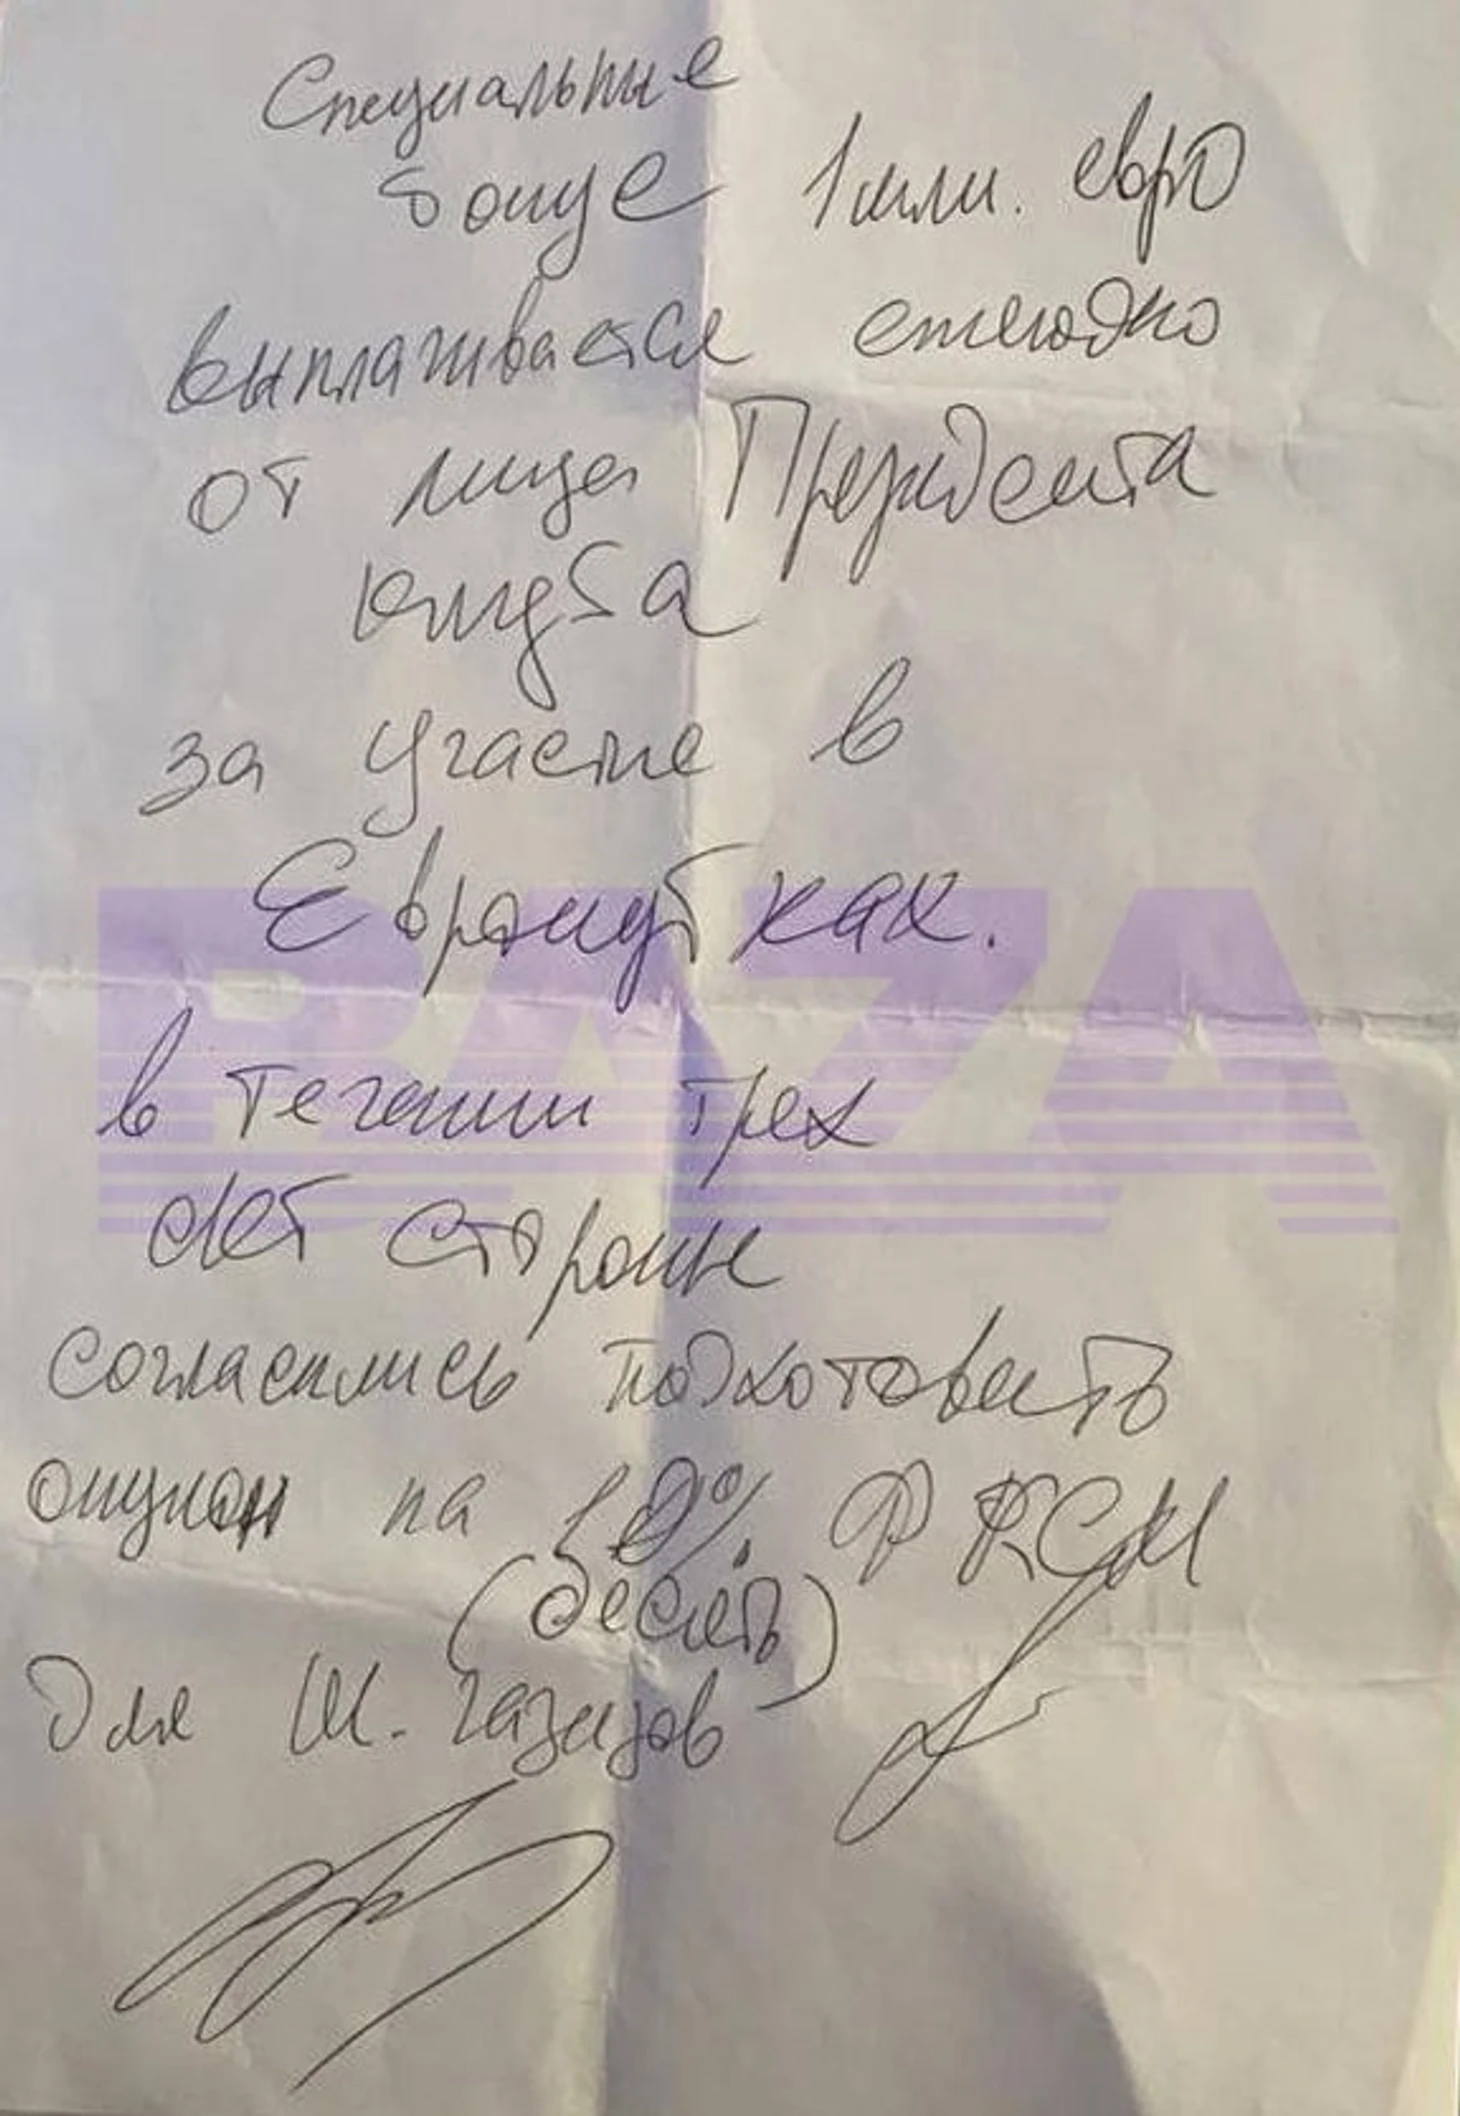 Специальные
бонус 1 млн. евро
выплачивается ежегодно
от лица Президента
клуба
за участие в
Еврокубках.
BAZA
в течении трех
лет стороны
согласились подготовить
опцион на 10% ФКСМ
(десять)
для Ш. Газизов